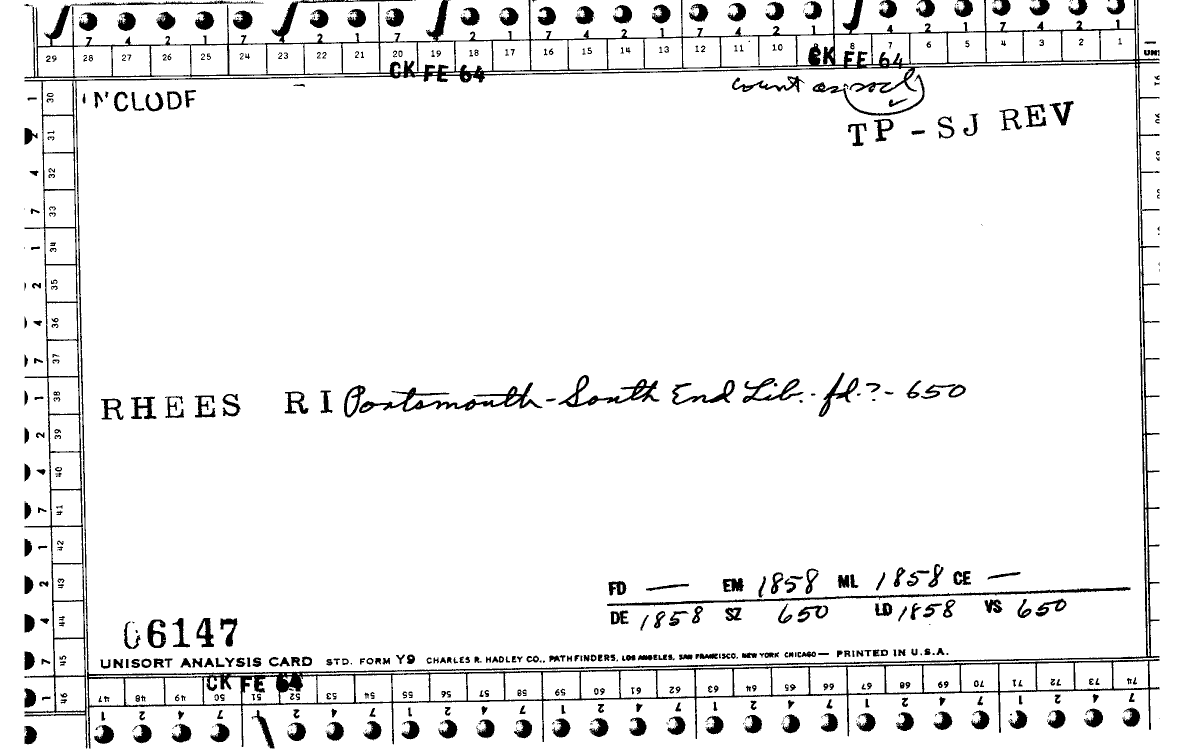 7 4 2 1 7 2 1 7 2 1 7 4 2 1 7 4 2 1 4 2 1 7 4 2 1
29 28 27 26 25 24 23 22 21 20 19 18 17 16 15 14 13 12 11 10 9 8 7 6 5 4 3 2 1
CK FE 64 CK FE 64
count as socl
INCLUDE
TP - SJ REV
1 30
2 31
4 32
7 33
1 34
2 35
4 36
7 37
1 38
2 39
4 40
7 41
1 42
2 43
4 44
7 45
1 46
RHEES RI Portsmouth - South End Lib. - fd.? - 650
FD — EM 1858 ML 1858 CE —
DE 1858 SZ 650 LD 1858 VS 650
06147
UNISORT ANALYSIS CARD STD. FORM Y9 CHARLES R. HADLEY CO., PATHFINDERS, LOS ANGELES, SAN FRANCISCO, NEW YORK CHICAGO — PRINTED IN U.S.A.
CK FE 64
47 48 49 50 51 52 53 54 55 56 57 58 59 60 61 62 63 64 65 66 67 68 69 70 71 72 73 74
1 2 4 7 2 4 7 1 2 4 7 1 2 4 7 1 2 4 7 1 2 4 7 1 2 4 7